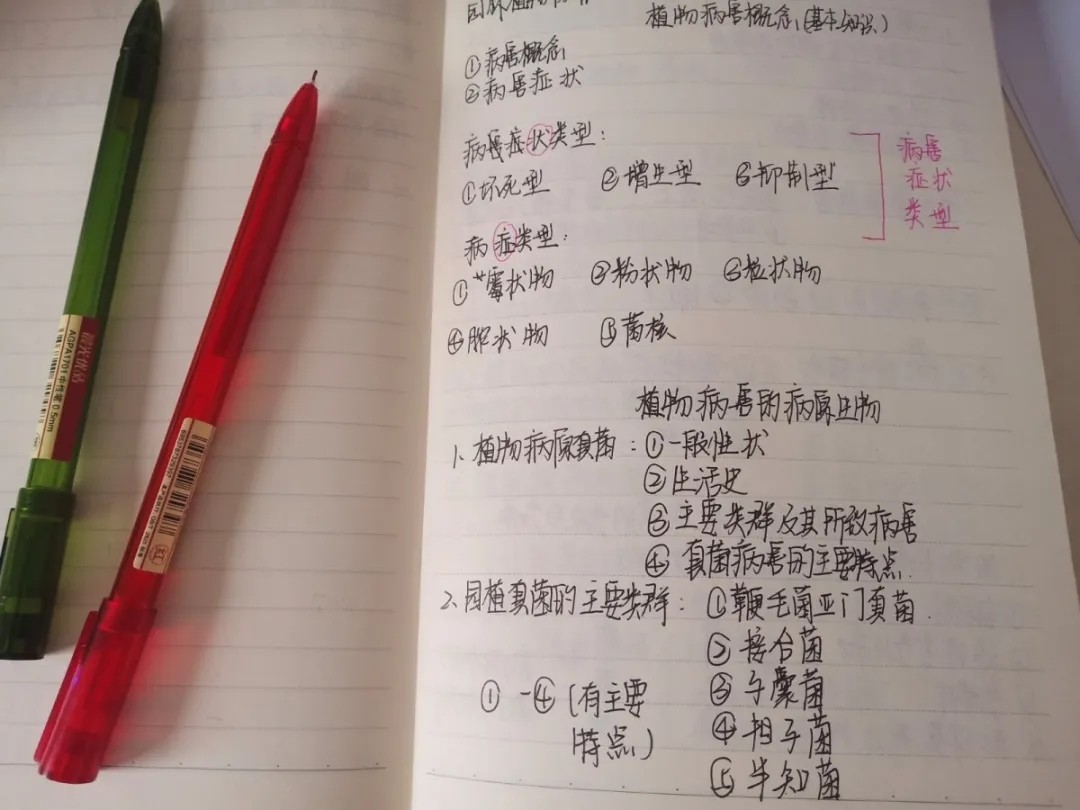 植物病害概念(基本知识)
①病害概念
②病害症状
病害症状类型:
①坏死型 ②增生型 ③抑制型
病害
症状
类型
病症类型:
①霉状物 ②粉状物 ③粒状物
④脓状物 ⑤菌核
植物病害的病原生物
1、植物病原真菌:①一般性状
②生活史
③主要类群及其所致病害
④真菌病害的主要特点.
2、园植真菌的主要类群:①鞭毛菌亚门真菌.
②接合菌
③子囊菌
①-④(有主要
④担子菌
特点)
⑤半知菌
AGPA1701 中性笔 0.5mm